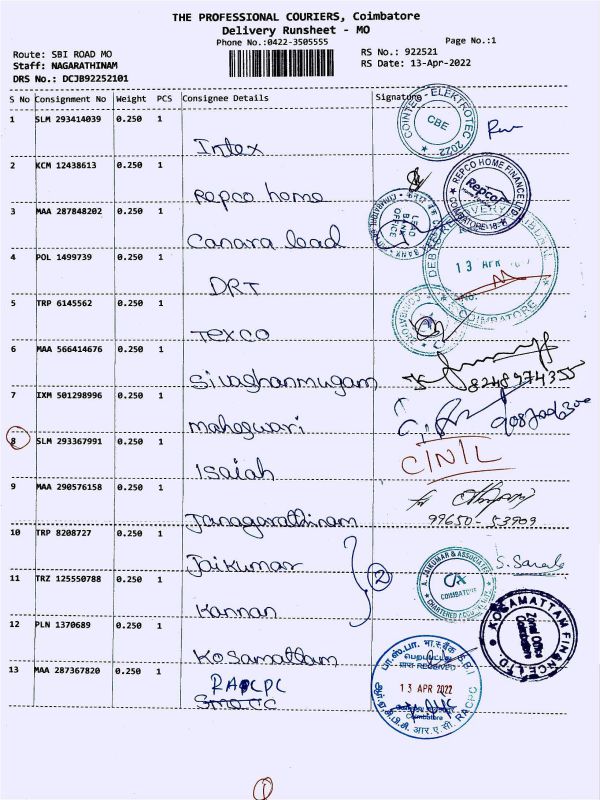 THE PROFESSIONAL COURIERS, Coimbatore
Delivery Runsheet - MO
Phone No.:0422-3505555
Page No.:1
Route: SBI ROAD MO
RS No.: 922521
Staff: NAGARATHINAM
RS Date: 13-Apr-2022
DRS No.: DCJB92252101
S No Consignment No Weight PCS Consignee Details Signature
1 SLM 293414039 0.250 1
Intex
COINTEC - ELEKTROTEC 2022
CBE
2 KCM 12438613 0.250 1
Repco home
REPCO HOME FINANCE LTD.
Repco
COIMBATORE-18
3 MAA 287848202 0.250 1
Canara lead
LEAD BANK OFFICE
4 POL 1499739 0.250 1
DRT
13 APR
COIMBATORE
5 TRP 6145562 0.250 1
Texco
6 MAA 566414676 0.250 1
Sivashanmugam
8248974355
7 IXM 501298996 0.250 1
maheswari
8 SLM 293367991 0.250 1
Isaiah
C/N/L
9 MAA 290576158 0.250 1
Janagarathinam
99650-53909
10 TRP 8208727 0.250 1
Jaikumar
2
A. JAIKUMAR & ASSOCIATES
CA
COIMBATORE
CHARTERED ACCOUNTANTS
S. Sarala
11 TRZ 125550788 0.250 1
Kannan
12 PLN 1370689 0.250 1
Kosamattam
KOSAMATTAM FINANCE LTD.
Zonal Office
Coimbatore
13 MAA 287367820 0.250 1
RACPC
S.B.I RACPC
RECEIVED
13 APR 2022
Coimbatore
1